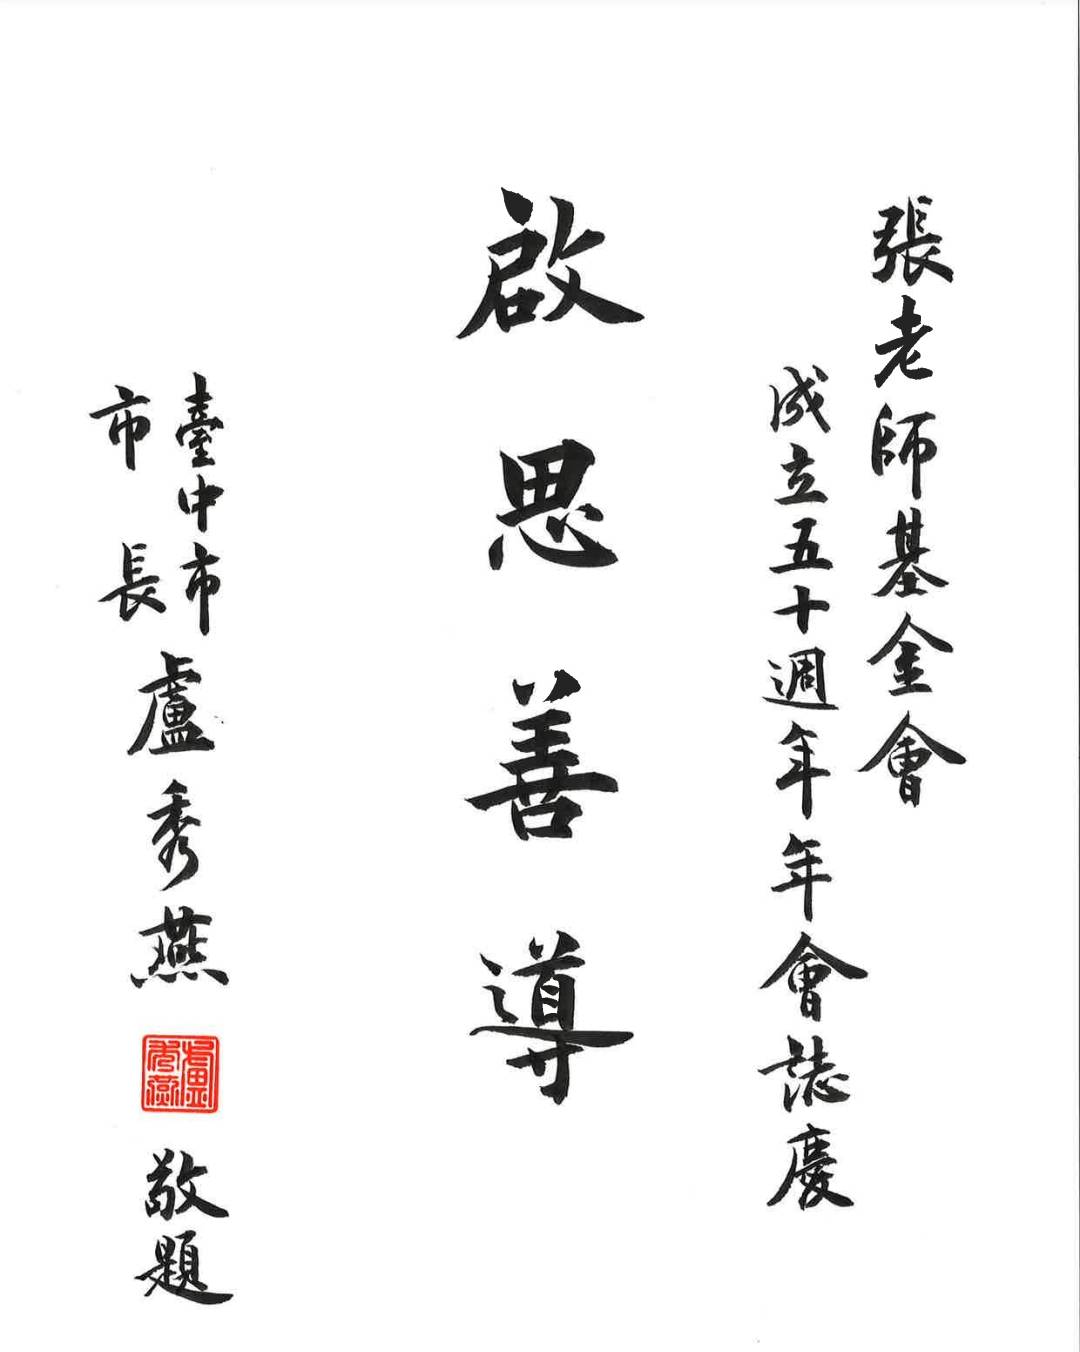 張老師基金會
成立五十週年年會誌慶
啟思善導
臺中市
市長
盧秀燕
盧秀燕
敬題